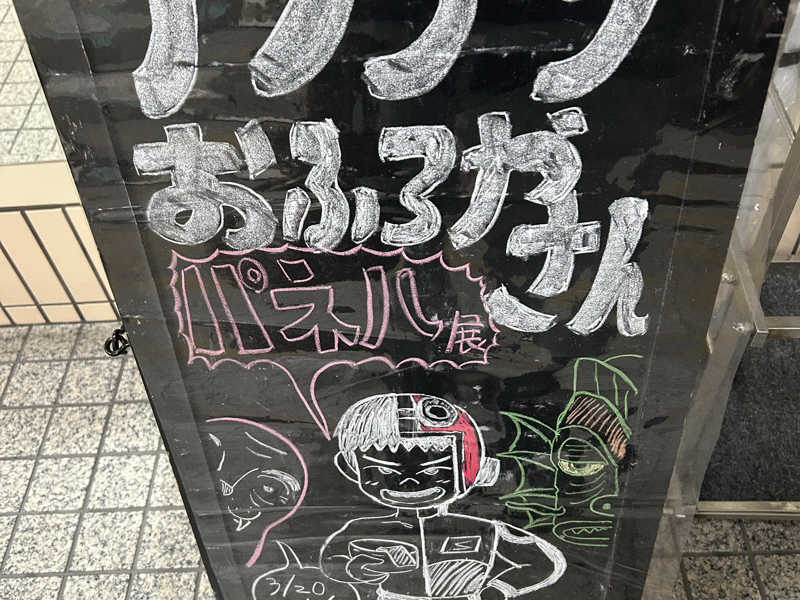 おふろやさん
パネル展
3/20